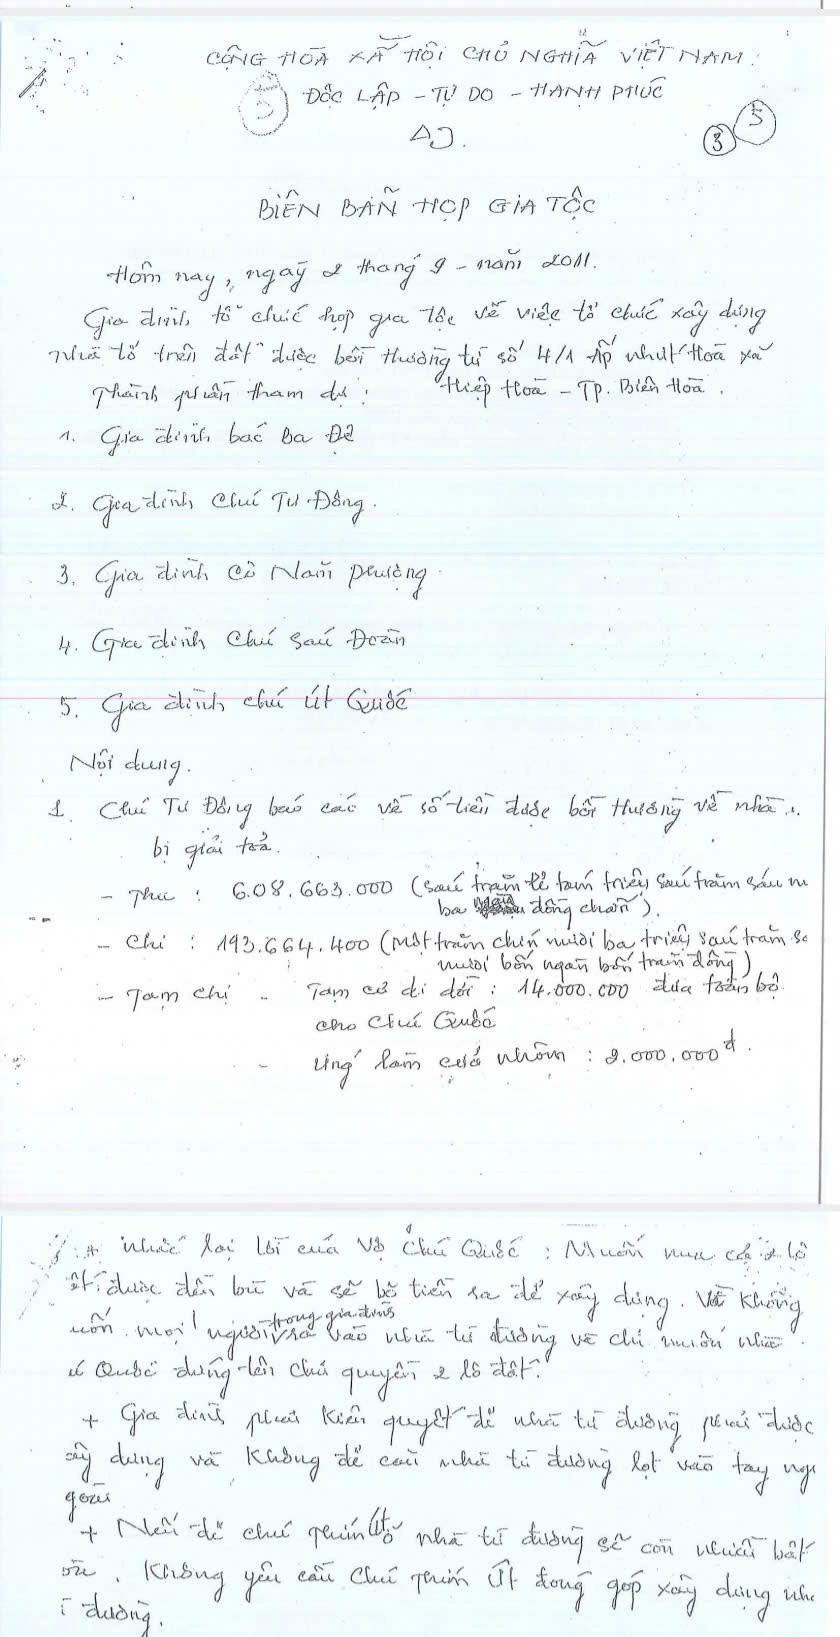 CỘNG HÒA XÃ HỘI CHỦ NGHĨA VIỆT NAM
ĐỘC LẬP - TỰ DO - HẠNH PHÚC
5
3 5
BIÊN BẢN HỌP GIA TỘC
Hôm nay, ngày 2 tháng 9 - năm 2011.
Gia đình tổ chức họp gia tộc về việc tổ chức xây dựng
nhà tổ trên đất được bồi thường từ số 4/1 ấp nhứt Hoà xã
Hiệp Hoà - TP. Biên Hoà.
Thành phần tham dự:
1. Gia đình bác Ba Đê
2. Gia đình chú Tư Đông.
3. Gia đình cô Năm Phường
4. Gia đình chú Sáu Đoàn
5. Gia đình chú Út Quốc
Nội dung.
1. Chú Tư Đông báo cáo về số tiền được bồi thường về nhà
bị giải toả.
- Thu : 608.663.000 (sáu trăm lẻ tám triệu sáu trăm sáu m
ba đồng chẵn).
- Chi : 193.664.400 (một trăm chín mươi ba triệu sáu trăm sá
mươi bốn ngàn bốn trăm đồng)
- Tạm chi - Tạm cư di dời : 14.000.000 đưa toàn bộ
cho chú Quốc
- Ứng làm cửa nhôm : 2.000.000đ.
+ Nhắc lại lời của Vợ Chú Quốc : Muốn mua cả 2 lô
được đền bù và sẽ bỏ tiền ra để xây dựng. Và không
mọi người trong gia đình vào nhà từ đường và chỉ muốn nhà
Quốc đứng tên chủ quyền 2 lô đất.
+ Gia đình phải kiên quyết để nhà từ đường phải được
dựng và không để cái nhà từ đường lọt vào tay ng
goài
+ Nếu để chú thím út nhà từ đường sẽ còn nhiều bất
ổn. Không yêu cầu Chú Thím Út đóng góp xây dựng nhà
đường.